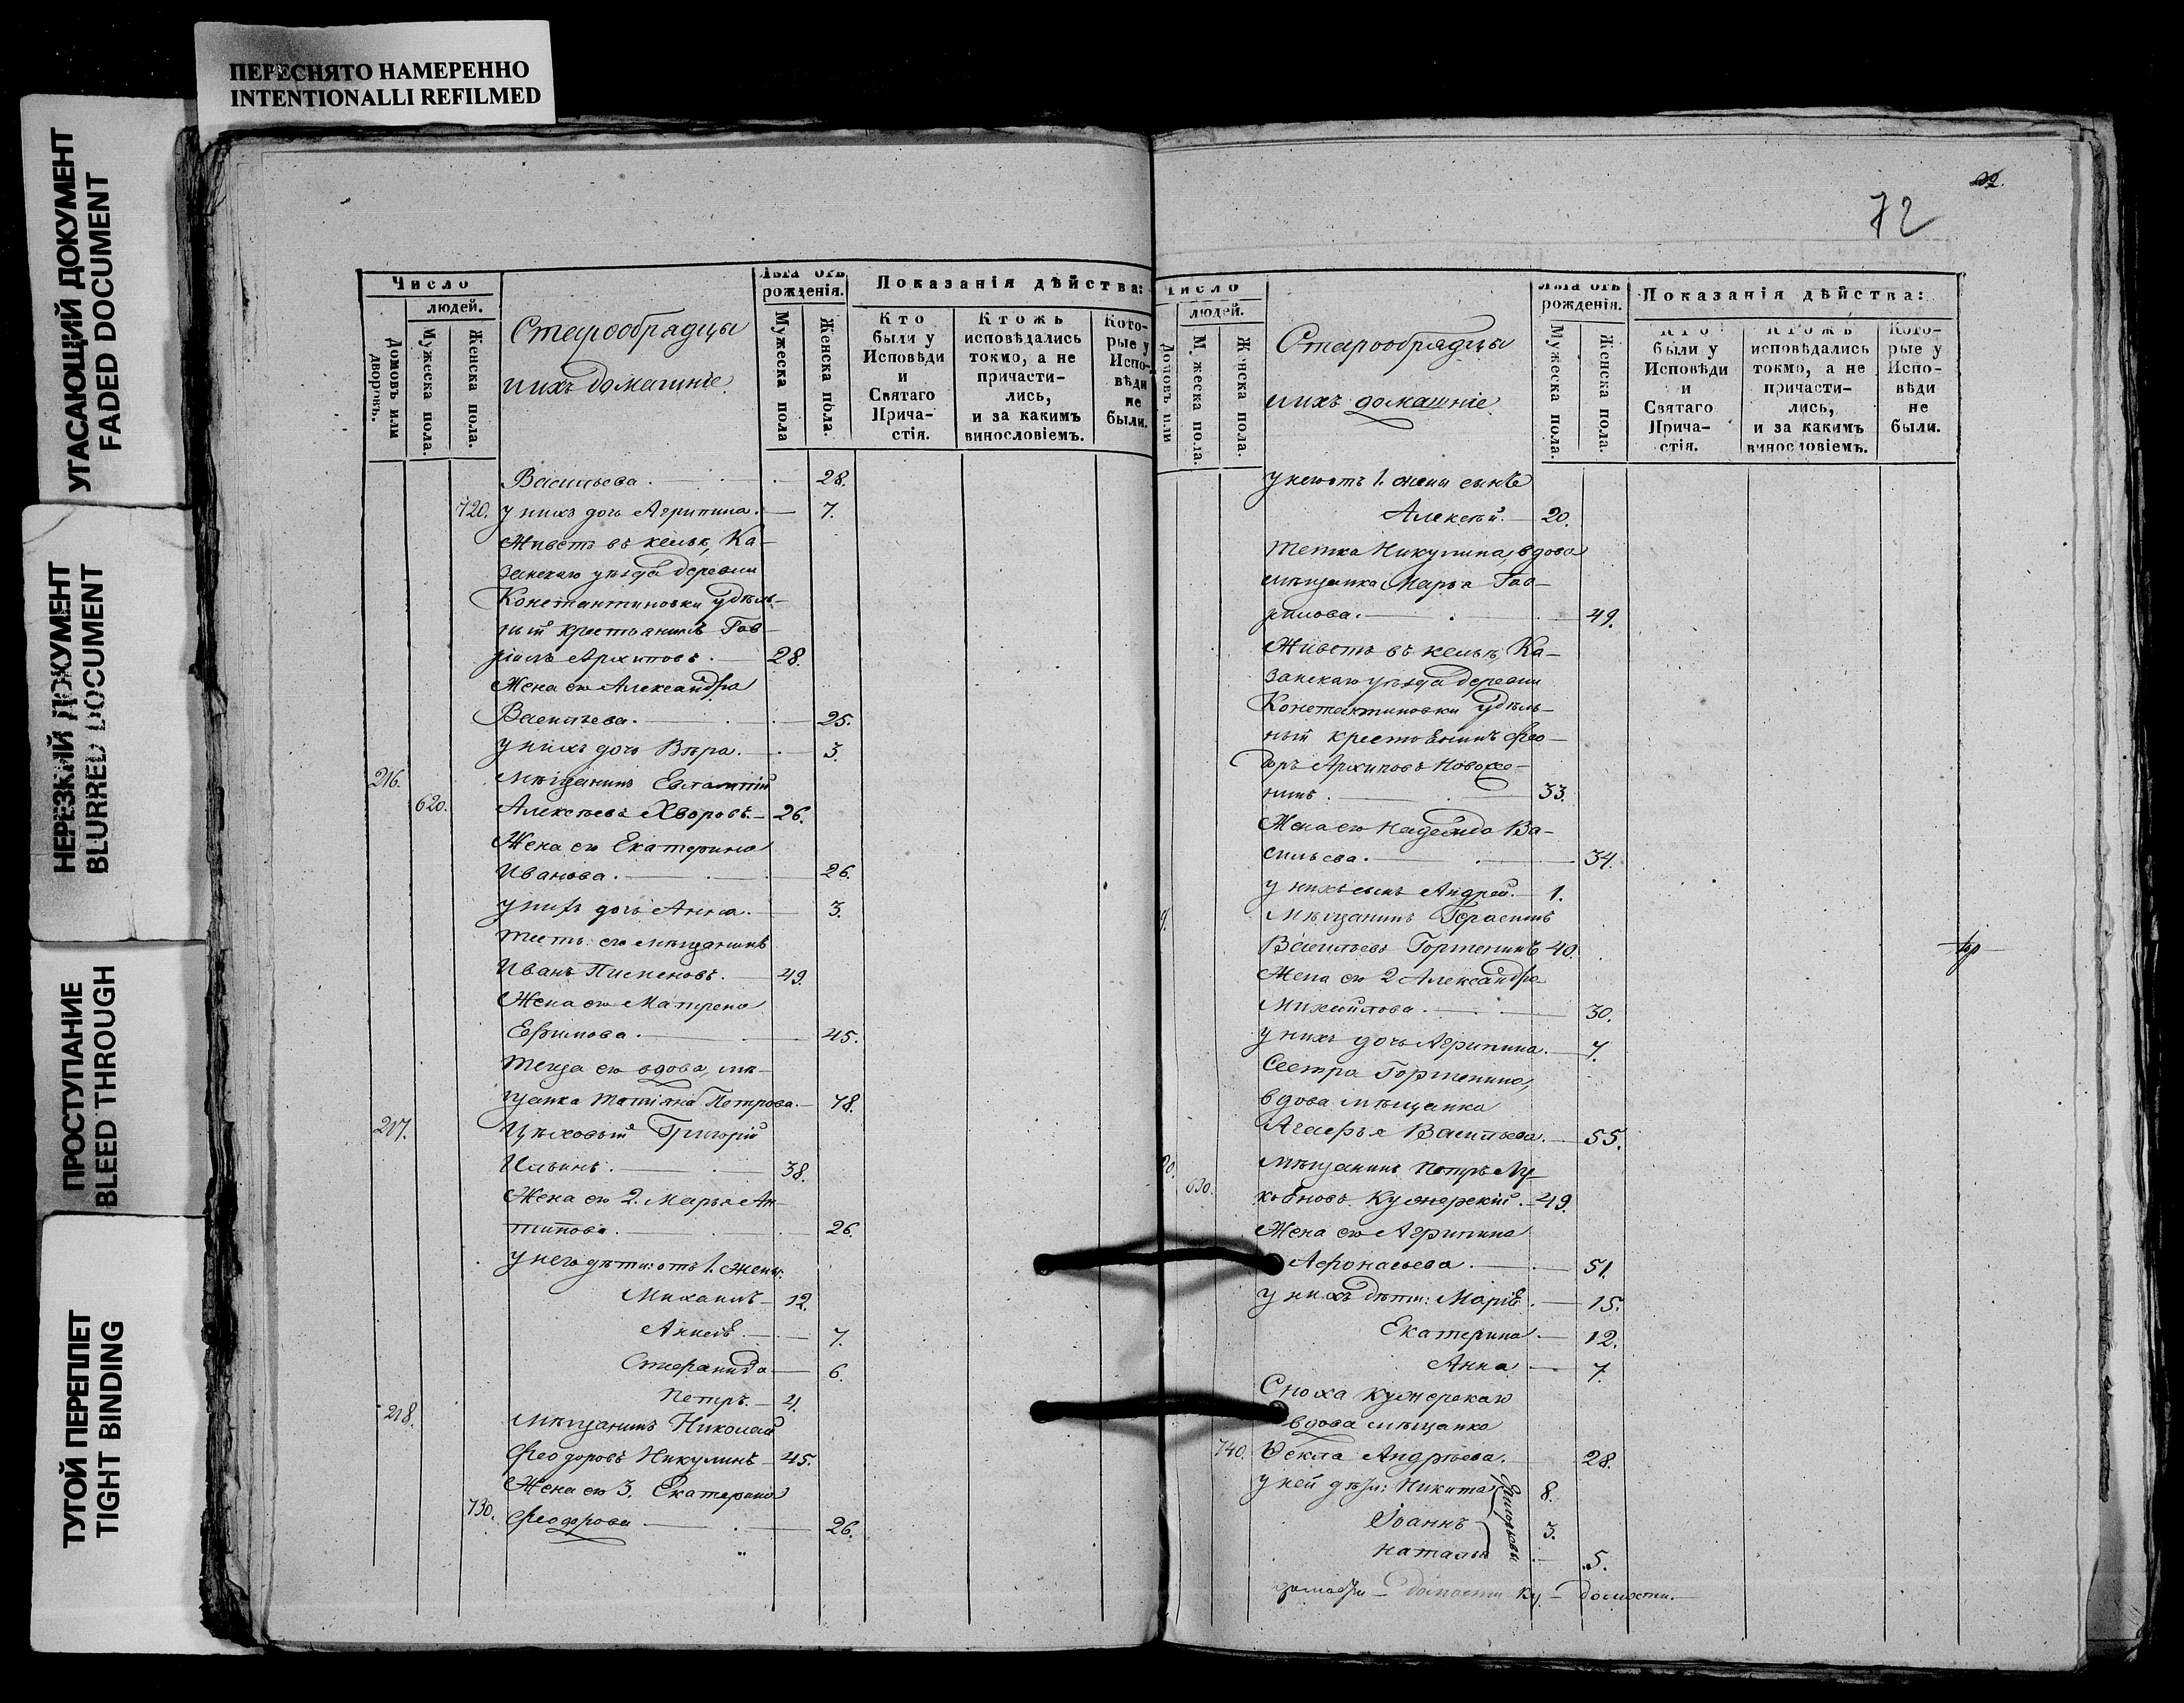 ПЕРЕСНЯТО НАМЕРЕННО
INTENTIONALLI REFILMED
УГАСАЮЩИЙ ДОКУМЕНТ
FADED DOCUMENT
НЕРЕЗКИЙ ДОКУМЕНТ
BLURRED DOCUMENT
ПРОСТУПАНИЕ
BLEED THROUGH
ТУГОЙ ПЕРЕПЛЕТ
TIGHT BINDING
Число
людей.
Домовъ или дворовъ.
Мужеска пола.
Женска пола.
Старообрядцы
и ихъ домашніе.
Лѣта отъ
рожденія.
Мужеска пола
Женска пола.
Показанія дѣйства:
Кто
были у
Исповѣди
и
Святаго
Прича-
стія.
Ктожъ
исповѣдались
токмо, а не
причасти-
лись,
и за какимъ
винословіемъ.
Кото-
рые у
Испо-
вѣди
не
были.
Васильева. 28.
720. у нихъ дочь Агрипина. 7.
Живетъ въ кельѣ, Ка-
занскаго уѣзда деревни
Константиновки удѣль-
ный крестьянинъ Гав-
ріилъ Архиповъ. 28.
Жена его Александра
Васильева. 25.
у нихъ дочь Вѣра. 3.
216. Мѣщанинъ Евлампій
620. Алексѣевъ Хворовъ. 26.
Жена его Екатерина
Иванова. 26.
у нихъ дочь Анна. 3.
тесть его мѣщанинъ
Иванъ Пименовъ. 49.
Жена его Матрена
Ефимова. 45.
теща его вдова, мѣ-
щанка Татіяна Петрова. 78.
217. Цѣховый Григорій
Ильинъ. 38.
Жена его 2. Марья Ан-
типова. 26.
у него дѣти: отъ 1. жены:
Михаилъ 12.
7.
6.
Петръ. 4.
218. Мѣщанинъ Николай
Феодоровъ Никулинъ 45.
Жена его 3. Екатерина
730. Феодорова 26.
72
Число
людей.
Домовъ или
Мужеска пола.
Женска пола.
Старообрядцы
и ихъ домашніе.
Лѣта отъ
рожденія.
Мужеска пола.
Женска пола.
Показанія дѣйства:
Кто
были у
Исповѣди
и
Святаго
Прича-
стія.
Ктожъ
исповѣдались
токмо, а не
причасти-
лись,
и за какимъ
винословіемъ.
Кото-
рые у
Испо-
вѣди
не
были.
у него отъ 1. жены сынъ
Алексѣй. 20.
тетка Никулина, вдова
мѣщанка Марья Гав-
рилова. 49.
Живетъ въ кельѣ, Ка-
занскаго уѣзда деревни
Константиновки удѣль-
ный крестьянинъ Фео-
доръ Архиповъ
33.
Жена его Надежда Ва-
сильева. 34.
у нихъ сынъ Андрей. 1.
9. Мѣщанинъ Герасимъ
Васильевъ Гортенинъ 40.
Жена его 2 Александра
Михайлова. 30.
у нихъ дочь Агрипина. 7.
Сестра Гортенина,
вдова мѣщанка
Агафья Васильева. 55.
20. Мѣщанинъ Петръ Лу-
630. кьяновъ Кужерскій. 49.
Жена его Агрипина
Афонасьева. 51.
у нихъ дѣти: Марія. 15.
Екатерина. 12.
Анна 7.
Сноха Кужерскаго
вдова мѣщанка
740. Ѳекла Андрѣева. 28.
у ней дѣти: Никита 8.
Іоаннъ 3.
Наталья 5.